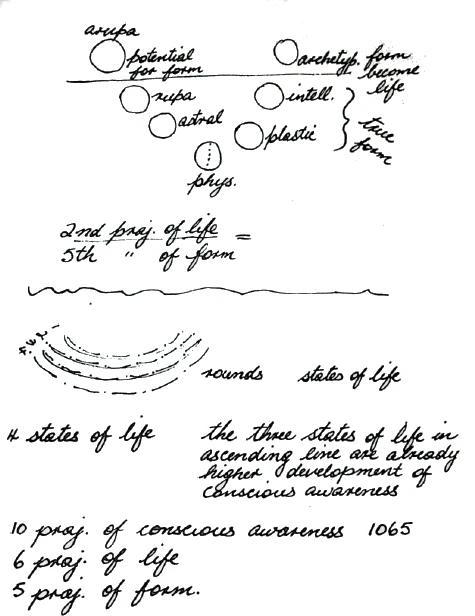 arupa
potential
for form
archetyp. form
become
life
rupa
intell.
astral
plastic
true
form
phys.
2nd proj. of life =
5th " of form
4 3 2 1
rounds states of life
4 states of life
the three states of life in
ascending line are already
higher development of
conscious awareness
10 proj. of conscious awareness 1065
6 proj. of life
5 proj. of form.